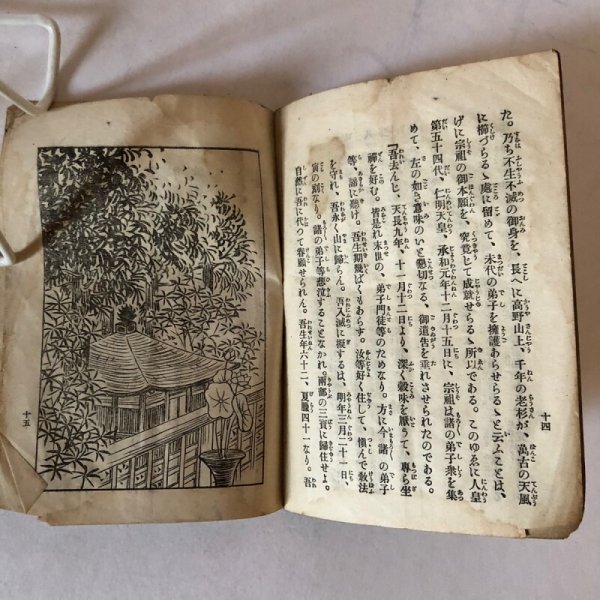 十四
た。乃ち不生不滅の御身を、長へに高野山上、千年の老杉が、萬古の天風
に櫛づらるゝ處に留めて、末代の弟子を擁護あらせらるゝと云ふことは、
げに宗祖の御本願を、究竟して成就せらるゝ所以である。このゆゑに人皇
第五十四代、仁明天皇、承和元年十二月十五日に、宗祖は諸の弟子衆を集
めて、左の如き意味のいと懇切なる、御遺告を垂れさせられたのである。
吾去んじ、天長九年、十一月十二日より、深く穀味を厭うて、專ら坐
禪を好む。皆是れ末世の、弟子門徒等のためなり。方に今、諸の弟子
等、諦に聽け。吾生期幾ばくもあらず。汝等好く住して、愼んで敎法
を守れ。吾永く山に歸らん。吾入滅に擬するは、明年三月二十一日、
寅の刻なり。諸の弟子等悲泣することなかれ。兩部の三寶に歸住せよ。
自然に吾に代つて眷顧せられん。吾生年六十二、夏臘四十一なり。吾
十五